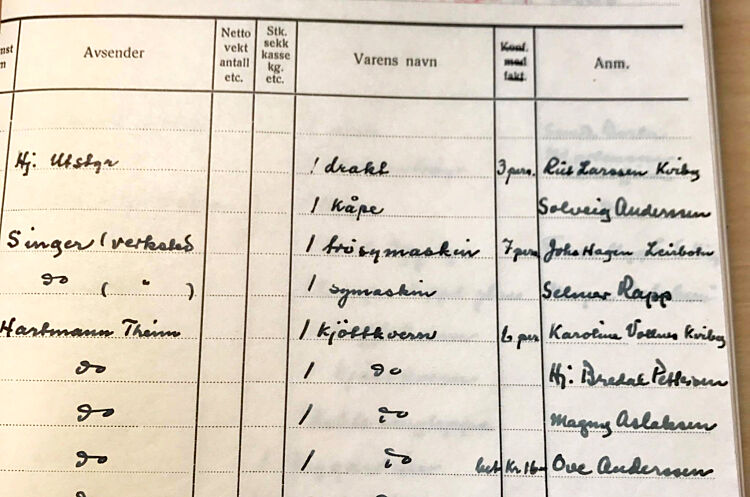 Avsender Netto vekt antall etc. Stk. sekk kasse kg. etc. Varens navn Konf. med fakt. Anm.
Hj. Utstyr 1 drakt 3 pers. Larssen Kviby
1 Kåpe Solveig Anderssen
Singer (verksted 1 symaskin 7 pers Johs Hagen Leirbotn
do ( " ) 1 symaskin Selmer Rapp
Hartmann Thein 1 Kjöttkvern 6 pers Karoline Kviby
do 1 do Hj. Bredal Pettersen
do 1 do Magny Aslaksen
do 1 do bet Kr 16- Ove Anderssen